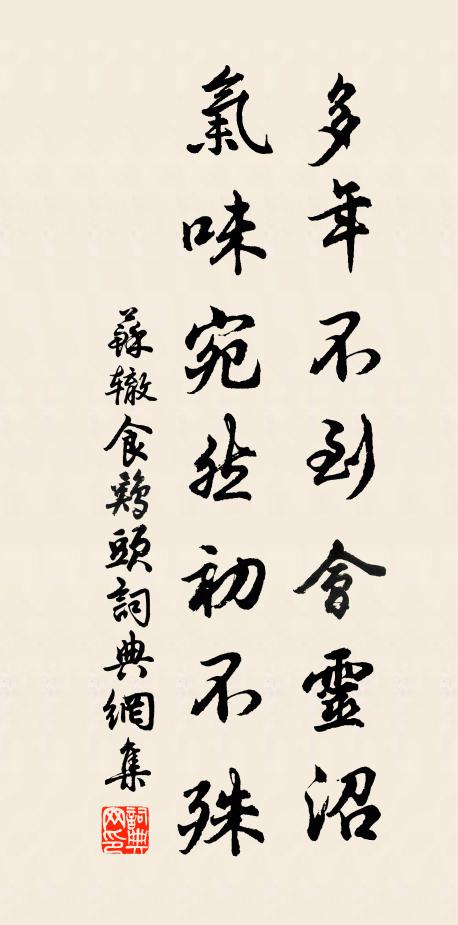 多年不到會靈沼
氣味宛然初不殊
蘇轍食鷄頭詞典網集
詞典网印